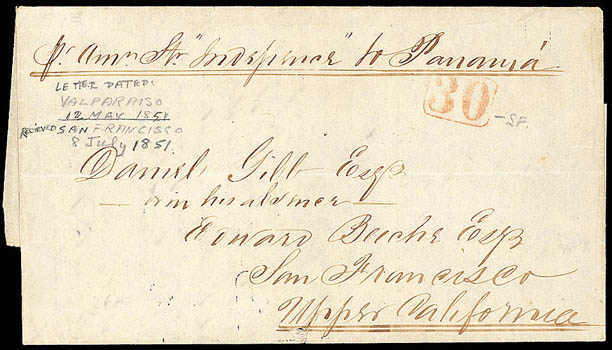 pr Amn Str "Indepence" to Panamá
30
LETTER DATED:
VALPARAISO
12 MAY 1851
RECIEVED SAN FRANCISCO
8 July 1851.
—SF.
Daniel Gibb Esqr
— or in his absence —
Edward Beeche Esqr
San Francisco
Upper California